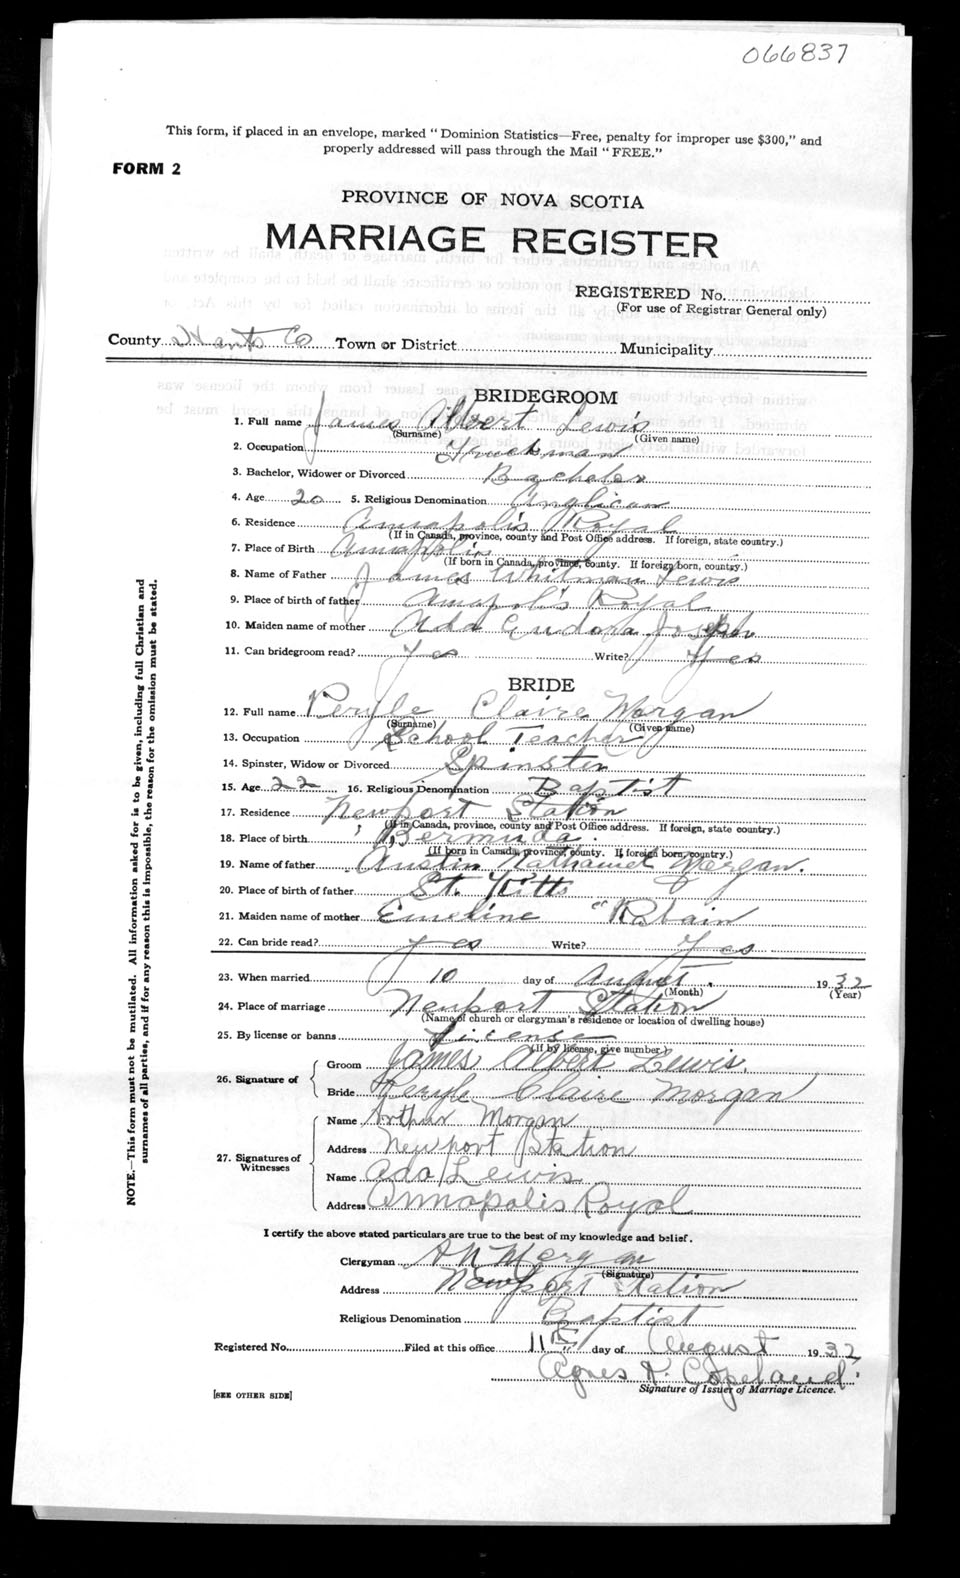 066837
This form, if placed in an envelope, marked "Dominion Statistics—Free, penalty for improper use $300," and
properly addressed will pass through the Mail "FREE."
FORM 2
PROVINCE OF NOVA SCOTIA
MARRIAGE REGISTER
REGISTERED No.
(For use of Registrar General only)
County Hants Co Town or District Municipality
BRIDEGROOM
1. Full name James Albert Lewis
(Surname) (Given name)
2. Occupation Truckman
3. Bachelor, Widower or Divorced Bachelor
4. Age 20 5. Religious Denomination Anglican
6. Residence Annapolis Royal
(If in Canada, province, county and Post Office address. If foreign, state country.)
7. Place of Birth Annapolis
(If born in Canada, province, county. If foreign born, country.)
8. Name of Father James Whitman Lewis
9. Place of birth of father Annapolis Royal
10. Maiden name of mother Ada Eudora Joseph
11. Can bridegroom read? Yes Write? Yes
BRIDE
12. Full name Peryle Claire Morgan
(Surname) (Given name)
13. Occupation School Teacher
14. Spinster, Widow or Divorced Spinster
15. Age 22 16. Religious Denomination Baptist
17. Residence Newport Station
(If in Canada, province, county and Post Office address. If foreign, state country.)
18. Place of birth Bermuda.
(If born in Canada, province, county. If foreign born, country.)
19. Name of father Austin Nathaniel Morgan.
20. Place of birth of father St. Kitts
21. Maiden name of mother Emeline
22. Can bride read? Yes Write? Yes
23. When married 10 day of August. 1932
(Month) (Year)
24. Place of marriage Newport Station
(Name of church or clergyman's residence or location of dwelling house)
25. By license or banns License
(If by license, give number.)
26. Signature of
Groom James Albert Lewis.
Bride Peryle Claire Morgan
27. Signatures of Witnesses
Name Arthur Morgan
Address Newport Station
Name Ada Lewis
Address Annapolis Royal
I certify the above stated particulars are true to the best of my knowledge and belief.
Clergyman A N Morgan
(Signature)
Address Newport Station
Religious Denomination Baptist
Registered No. Filed at this office 11th day of August 1932
Agnes K. Copeland
Signature of Issuer of Marriage Licence.
[SEE OTHER SIDE]
NOTE.—This form must not be mutilated. All information asked for is to be given, including full Christian and
surnames of all parties, and if for any reason this is impossible, the reason for the omission must be stated.